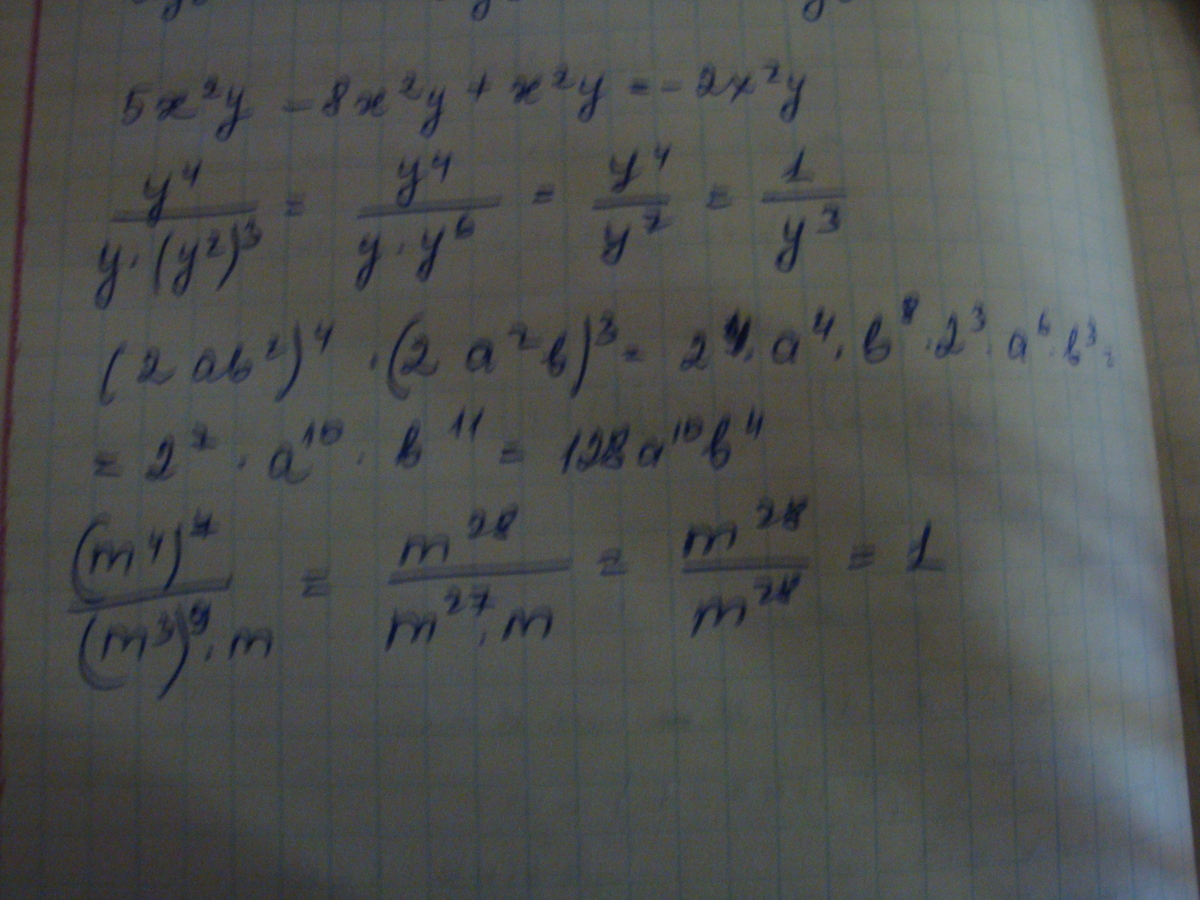 5x²y - 8x²y + x²y = -2x²y
y⁴/(y·(y²)³) = y⁴/(y·y⁶) = y⁴/y⁷ = 1/y³
(2ab²)⁴ · (2a²b)³ = 2⁴·a⁴·b⁸·2³·a⁶·b³=
= 2⁷·a¹⁰·b¹¹ = 128a¹⁰b⁴
(m⁴)⁷/((m³)⁹·m) = m²⁸/(m²⁷·m) = m²⁸/m²⁸ = 1